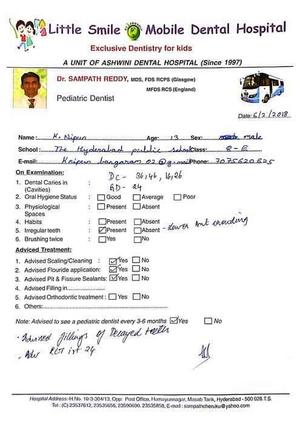 Little Smile Mobile Dental Hospital
Exclusive Dentistry for kids
A UNIT OF ASHWINI DENTAL HOSPITAL (Since 1997)
Dr. SAMPATH REDDY, MDS, FDS RCPS (Glasgow)
MFDS RCS (England)
Pediatric Dentist
Date: 6/2/2018
Name: K. Nipun Age: 13 Sex: male
School: The Hyderabad public school Class: 8-E
E-mail: Knipun.bangaram.02@gmail Phone: 7075620625
On Examination:
1. Dental Caries in (Cavities) DC- 36,46, 16,26
24
2. Oral Hygiene Status Good Average Poor
3. Physiological Spaces Present Absent
4. Habits Present Absent
5. Irregular teeth Present Absent - Lower ant crowding
6. Brushing twice Yes No
Adviced Treatment:
1. Advised Scaling/Cleaning : Yes No
2. Advised Flouride application: Yes No
3. Advised Pit & Fissure Sealants: Yes No
4. Advised Filling in
5. Advised Orthodontic treatment : Yes No
6. Others:
Note: Advised to see a pediatric dentist every 3-6 months Yes No
- Advised fillings of Decayed teeth
- Adv RCT ist 24
Hospital Address: H.No. 10-3-304/13, Opp: Post Office, Humayunnagar, Masab Tank, Hyderabad - 500 028.T.S.
Tel: (C) 23537612, 23535656, 23590690, 23535858, E-mail : sampathcheruku@yahoo.com